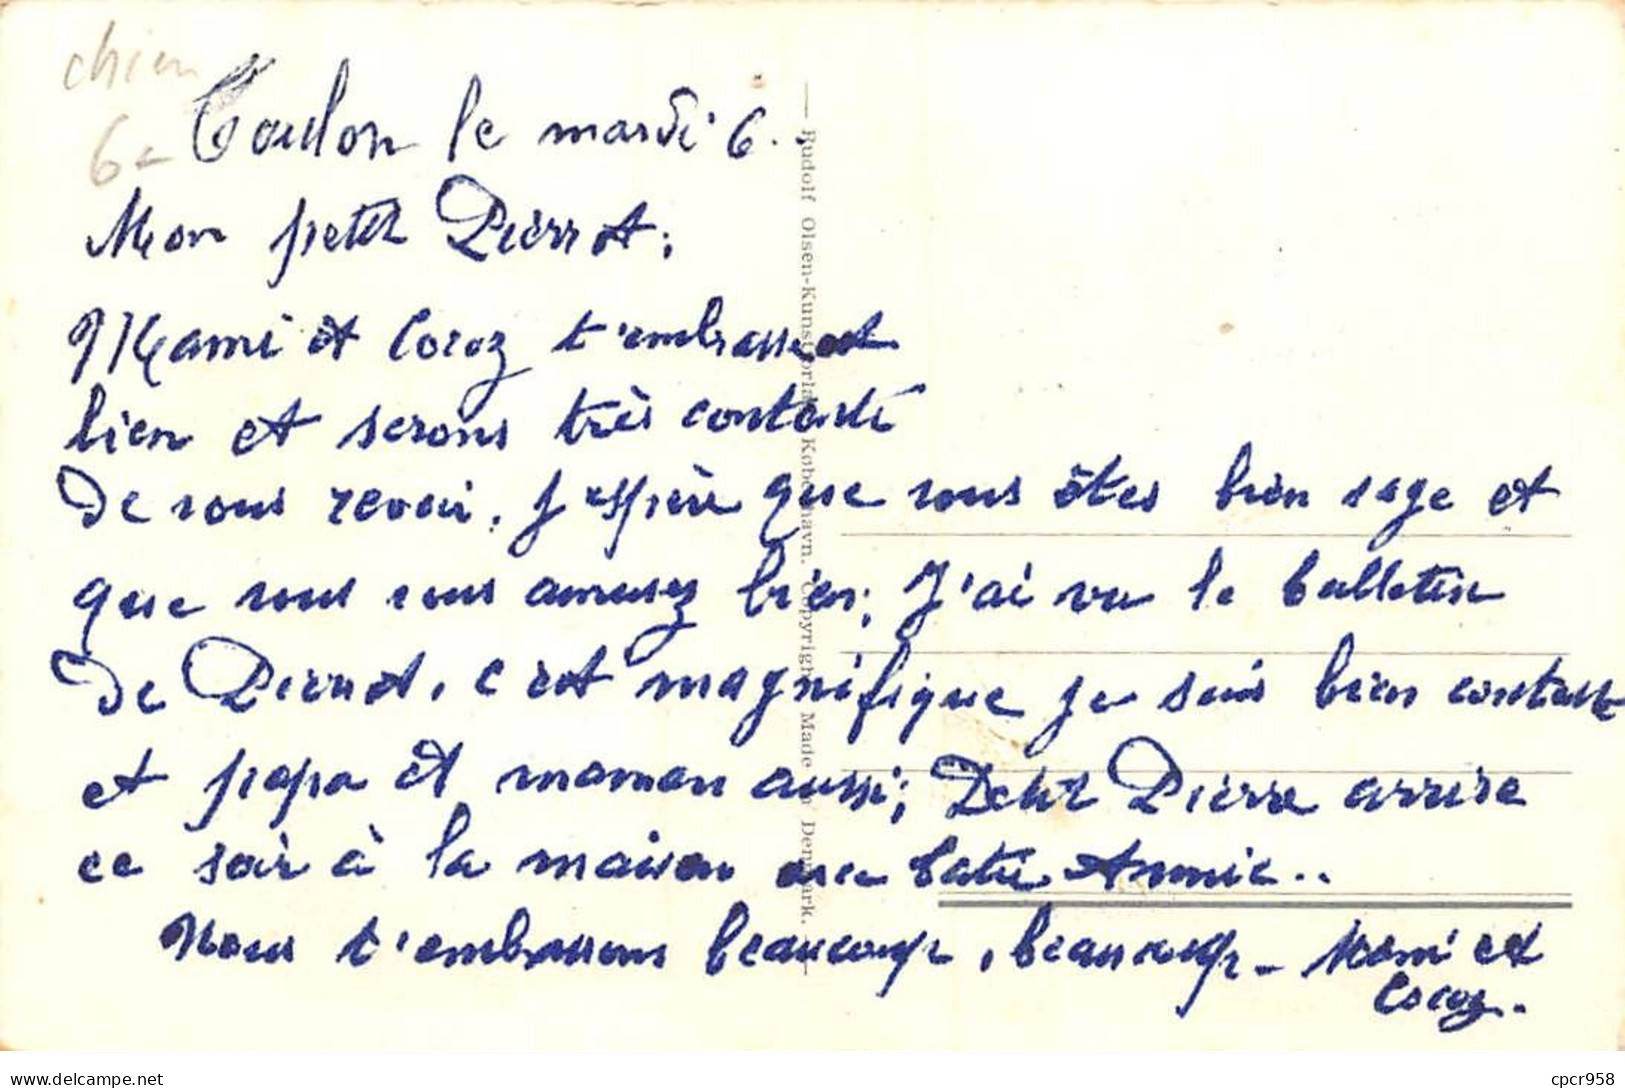 chien
6
Toulon le mardi 6.
Mon petit Pierrot,
Mami et Cocoz t'embrassent
bien et serons très contents
de vous revoir. J'espère que vous êtes bien sage et
que vous vous amusez bien; J'ai vu le bulletin
de Pierrot. c'est magnifique je suis bien contente
et papa et maman aussi; Petit Pierre arrive
ce soir à la maison avec Annie..
Nous t'embrassons beaucoup, beaucoup - Mami et
Cocoz.
Rudolf Olsen-Kunstforlag København. Copyright Made in Denmark.
www.delcampe.net
cpcr958